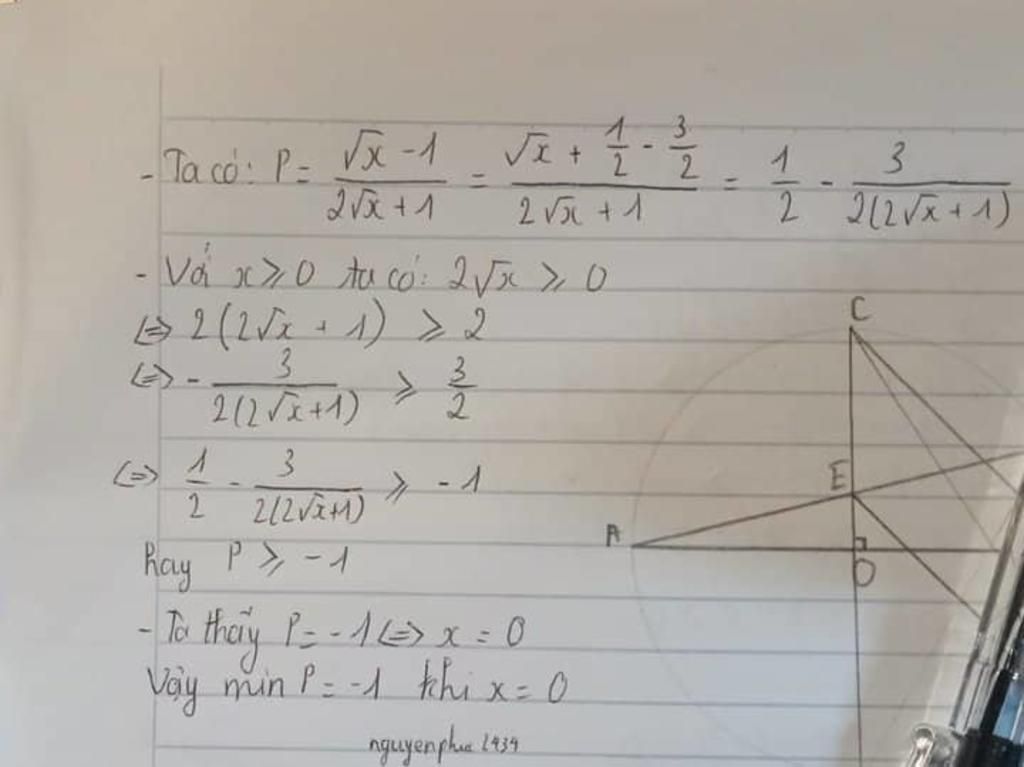 - Ta có: P = (√x - 1)/(2√x + 1) = (√x + 1/2 - 3/2)/(2√x + 1) = 1/2 - 3/(2(2√x + 1))
- Với x ⩾ 0 ta có: 2√x ⩾ 0
(=) 2(2√x + 1) ⩾ 2
(=) - 3/(2(2√x+1)) ⩾ 3/2
(=) 1/2 - 3/(2(2√x+1)) ⩾ -1
hay P ⩾ -1
- Ta thấy P = -1 (=) x = 0
Vậy min P = -1 khi x = 0
C
E
A
O